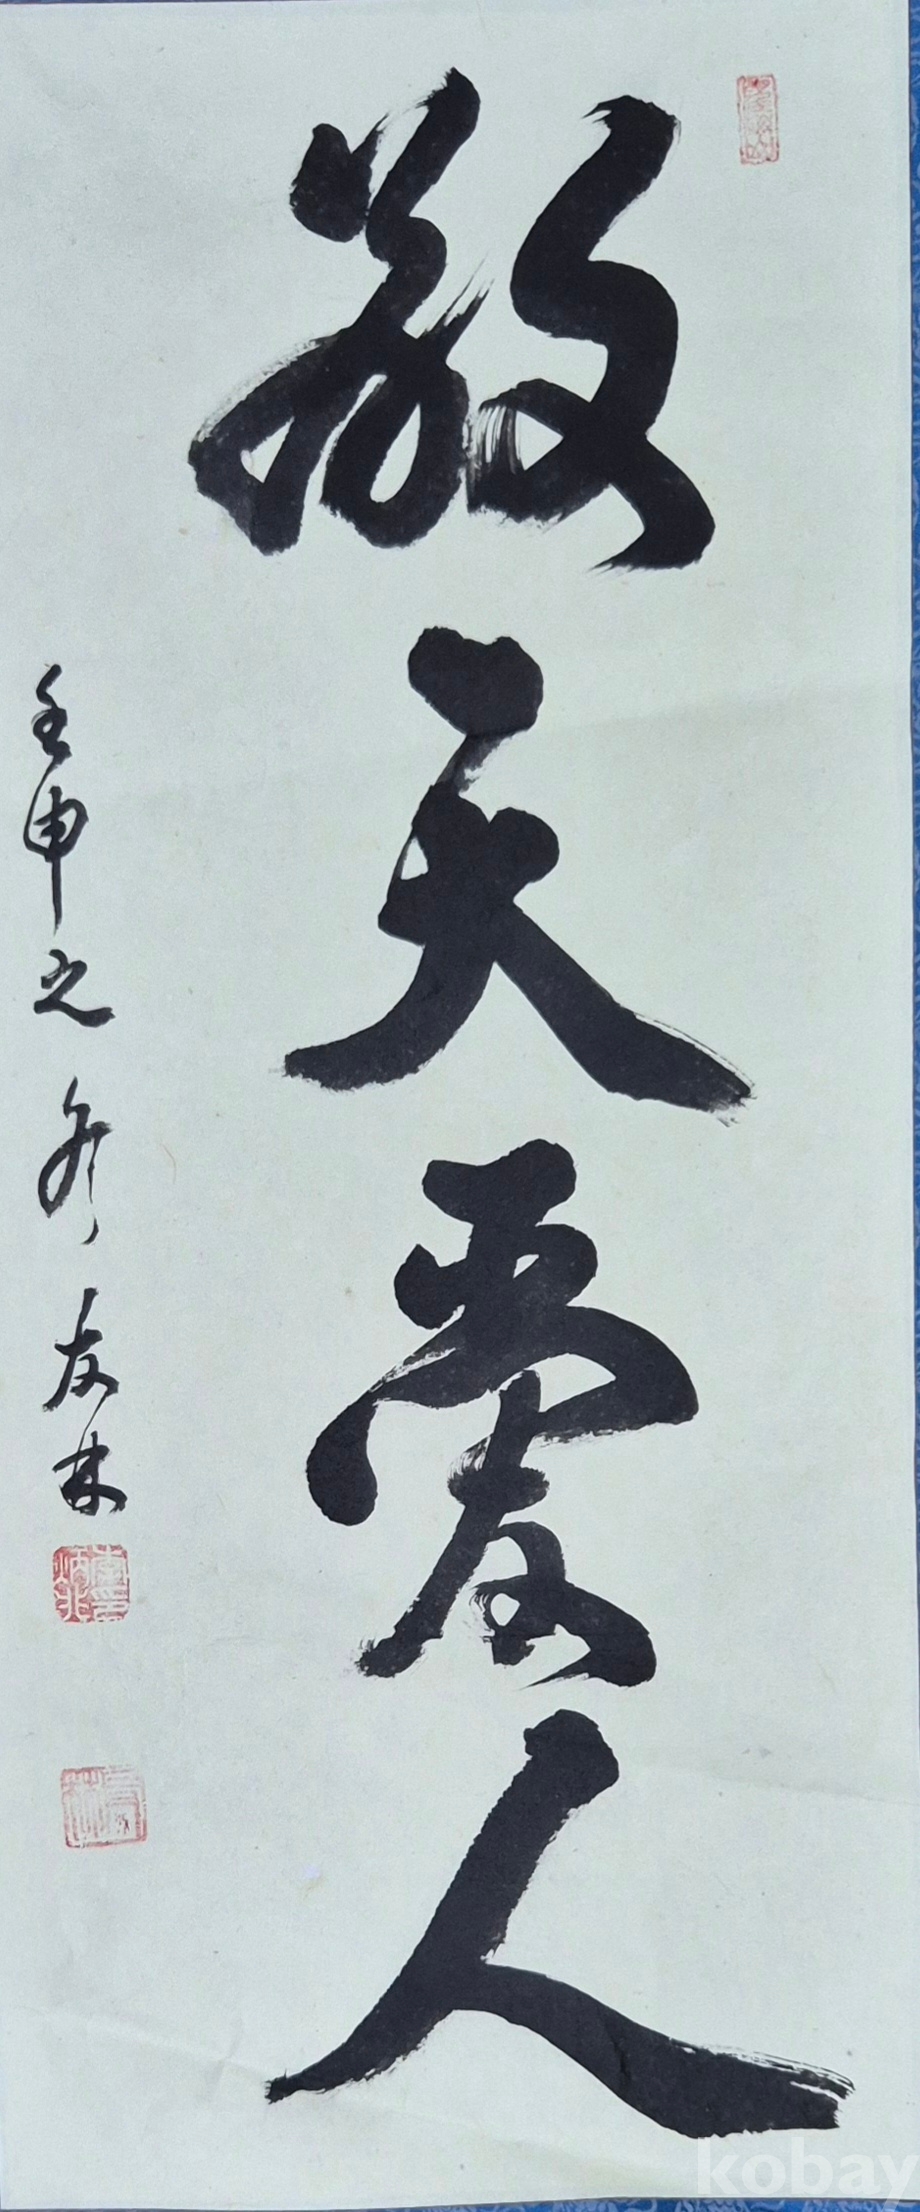 敬天愛人
壬申之冬 友林
kobay